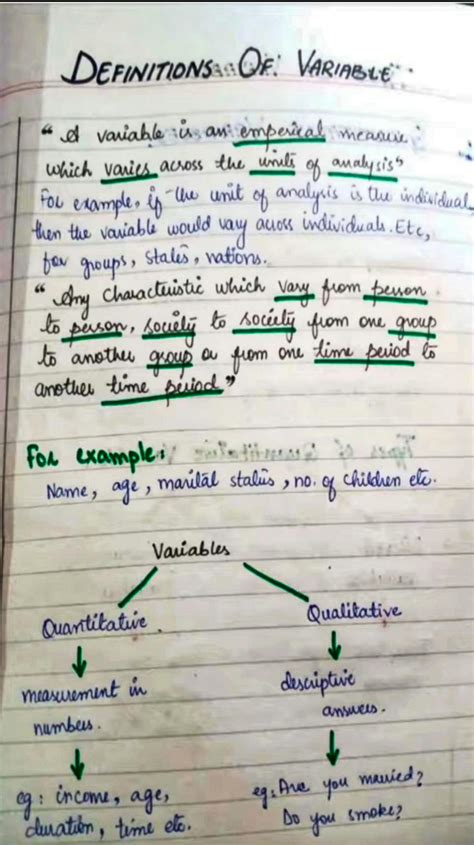 DEFINITIONS OF VARIABLE
"A variable is an emperical measure
which varies across the units of analysis"
For example, if the unit of analysis is the individual
then the variable would vary across individuals. Etc,
for groups, states, nations.
"Any characteristic which vary from person
to person, society to society from one group
to another group or from one time period to
another time period"
For example:
Name, age, marital status, no. of children etc.
Variables
Quantitative
Qualitative
measurement in
numbers.
descriptive
answers.
eg: income, age,
duration, time etc.
eg: Are you married?
Do you smoke?